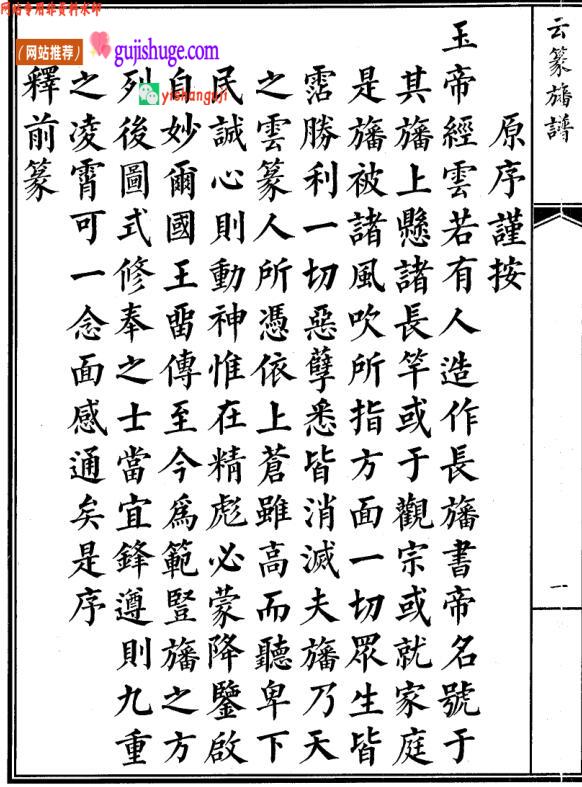 网站专用非资料水印
(网站推荐)
gujishuge.com
yishanguji
云篆旛譜
一
原序謹按
玉帝經雲若有人造作長旛書帝名號于
其旛上懸諸長竿或于觀宗或就家庭
是旛被諸風吹所指方面一切眾生皆
霑勝利一切惡孽悉皆消滅夫旛乃天
之雲篆人所憑依上蒼雖高而聽卑下
民誠心則動神惟在精彪必蒙降鑒啟
自妙爾國王畱傳至今爲範豎旛之方
列後圖式修奉之士當宜鋒遵則九重
之凌霄可一念面感通矣是序
釋前篆